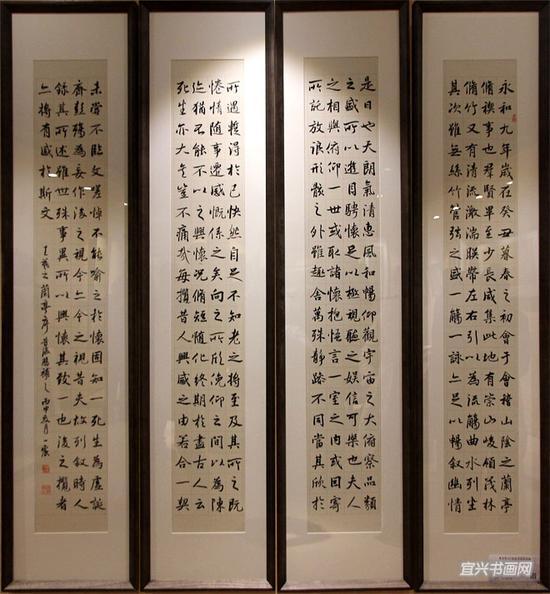 永和九年歲在癸丑暮春之初會于會稽山陰之蘭亭
脩禊事也群賢畢至少長咸集此地有崇山峻領茂林
脩竹又有清流激湍暎帶左右引以為流觴曲水列坐
其次雖無絲竹管弦之盛一觴一詠亦足以暢叙幽情
是日也天朗氣清惠風和暢仰觀宇宙之大俯察品類
之盛所以遊目騁懷足以極視聽之娱信可樂也夫人
之相與俯仰一世或取諸懷抱悟言一室之內或因寄
所託放浪形骸之外雖趣舍萬殊静躁不同當其欣於
所遇暫得於己快然自足不知老之將至及其所之既
惓情隨事遷感慨係之矣向之所欣俛仰之間以為陳
迹猶不能不以之興懷況脩短隨化終期於盡古人云
死生亦大矣豈不痛哉每攬昔人興感之由若合一契
未嘗不臨文嗟悼不能喻之於懷固知一死生為虛誕
齊彭殤為妄作後之視今亦今之視昔悲夫故列叙時人
錄其所述雖世殊事異所以興懷其致一也後之攬者
亦將有感於斯文 王羲之蘭亭序 丙申 月
宜兴书画网